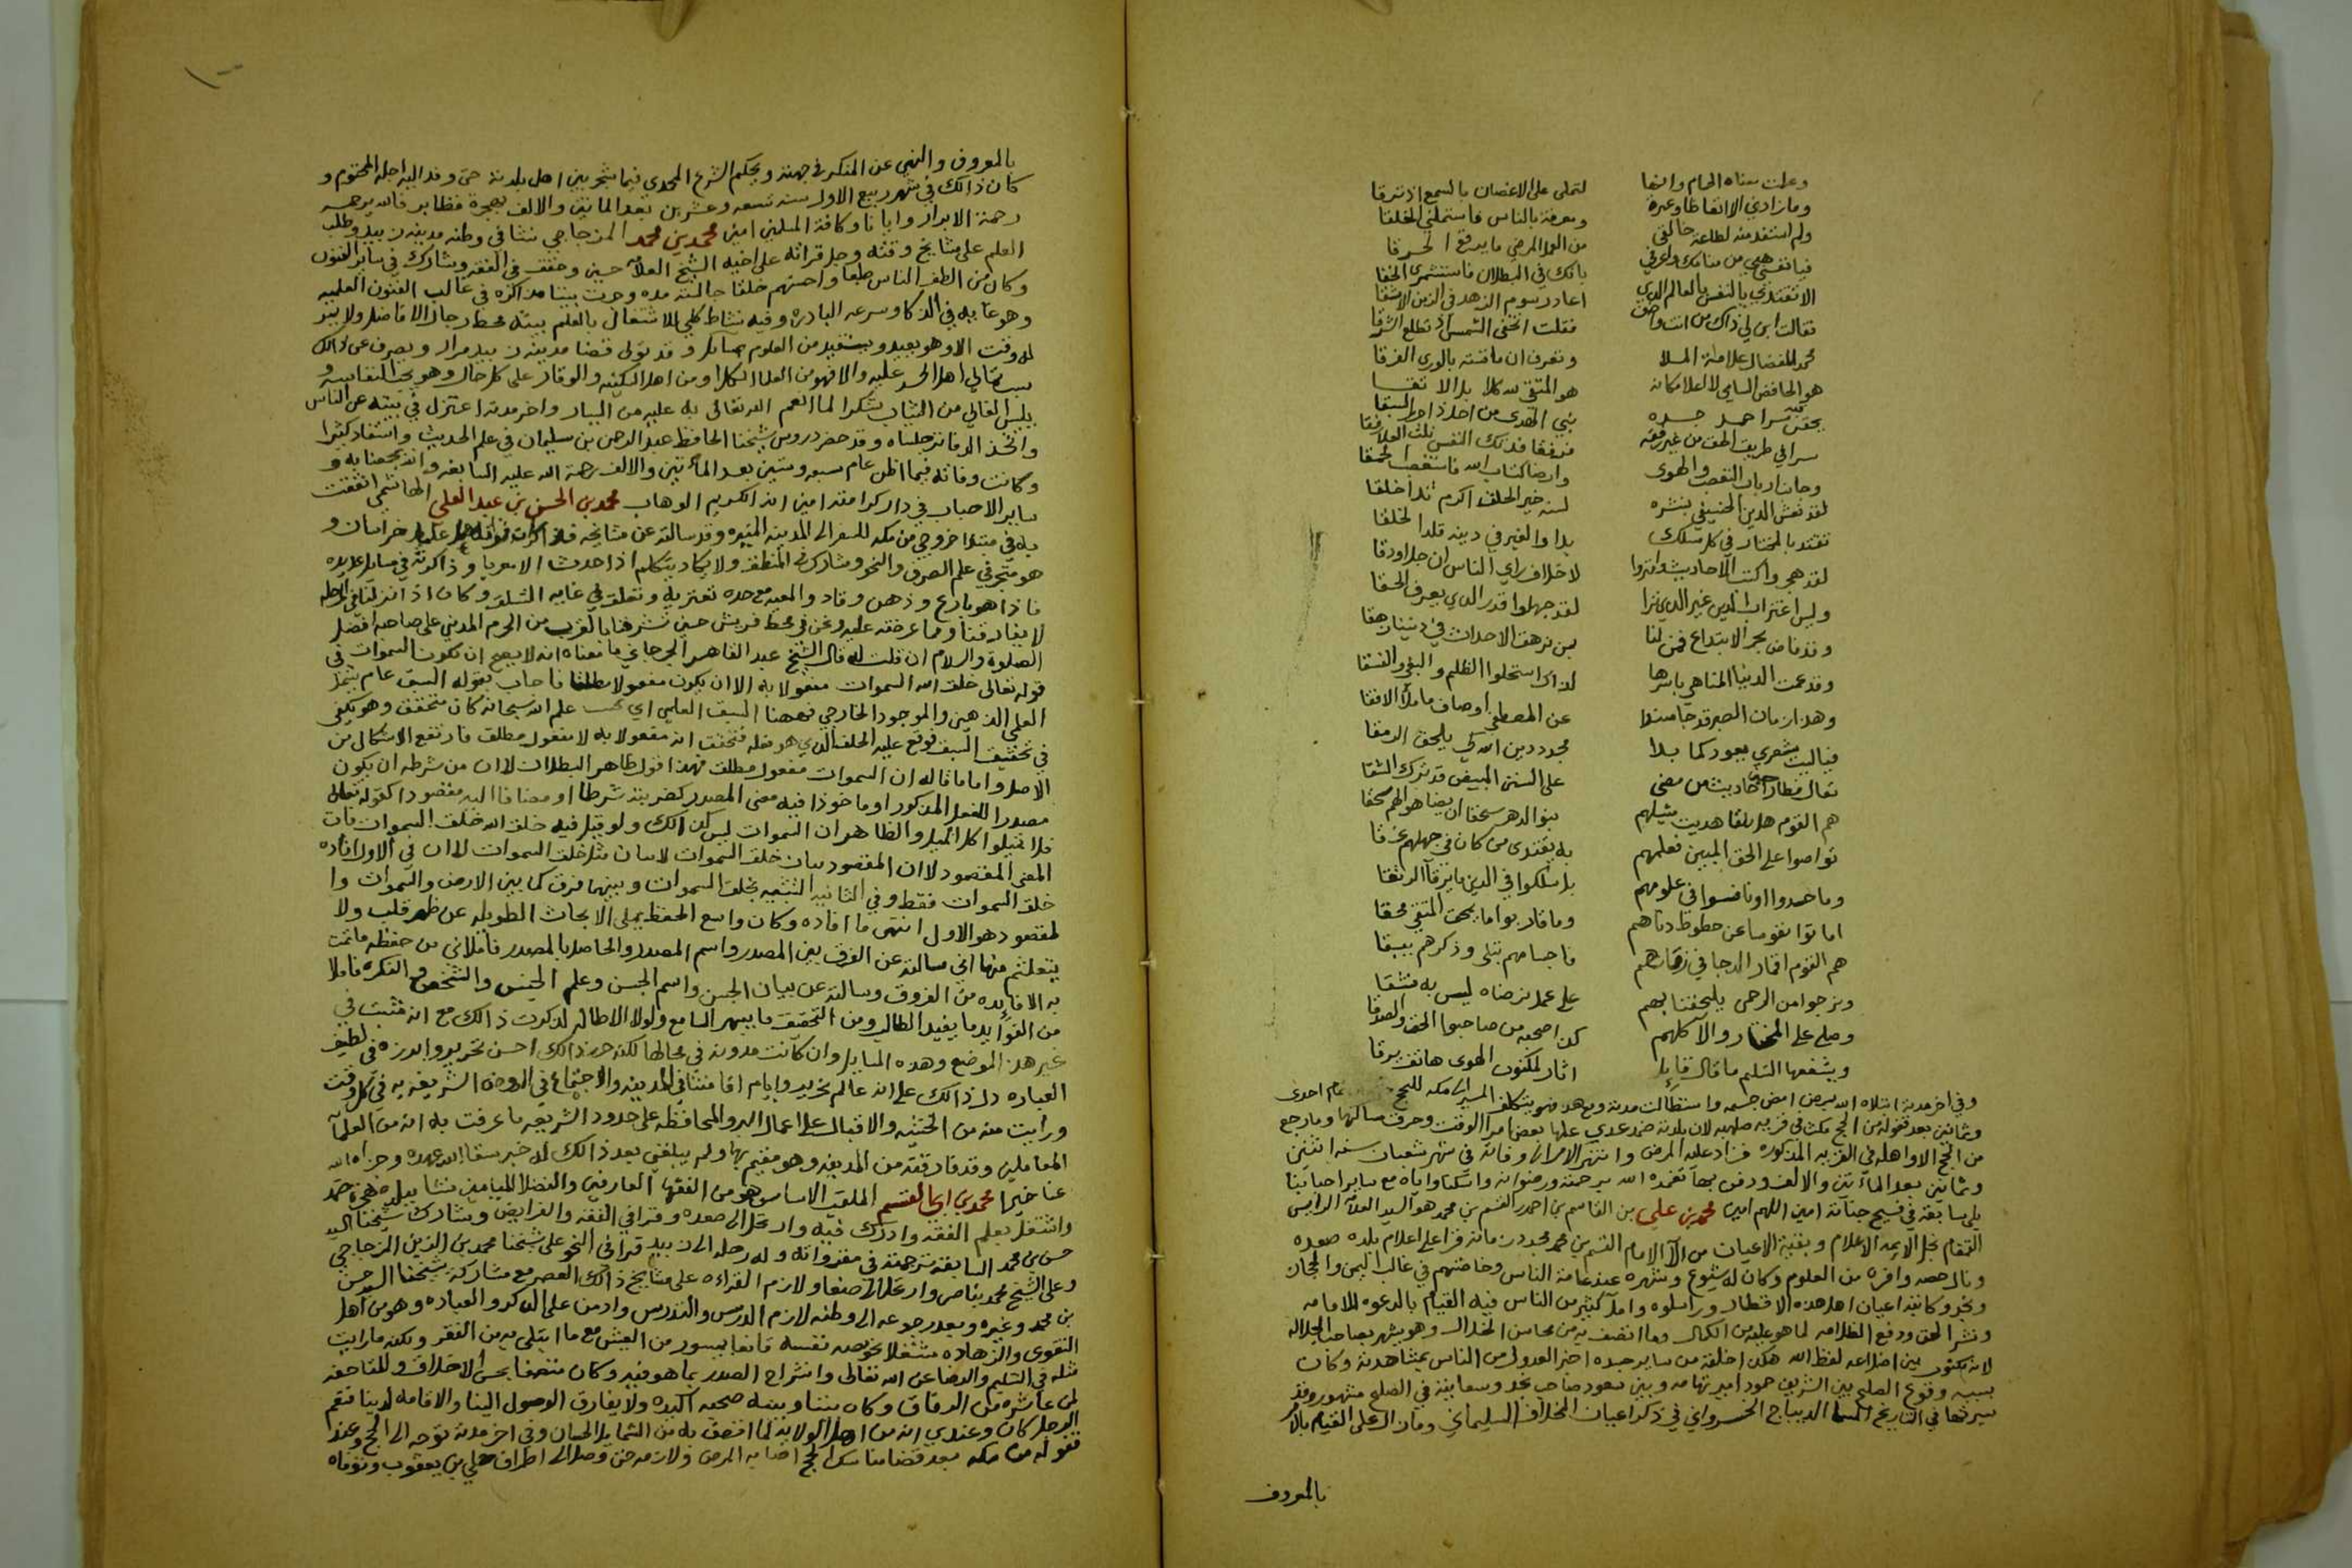 وعلت معناه الحمام وانما لتملى على الاغصان بالسمع اذ ترقا
وما زادني الا اتعاظا وعبرة ومعرفة بالناس فاستملني الخلقا
ولم استفد منه لطاعة خالقي من العمل المرضي ما يرقع الخرقا
فيا نفس هبي من منامك واعرفي بانك في البطلان
الا تقتدي يا نفس بالعالم الذي اعاد رسوم الزهد في الزمن الاشقا
فقالت ابن لي ذاك من انت واصف فقلت اتخفى الشمس اذ تطلع الشرقا
محمد المفضال علامة الملا وتعرف ان ما قسته بالورى الفرقا
هو الحافظ السامي لا العلا مكانه هو المتقي لله كلا بل الاتقا
سرا في طريق الحق من غير رفقة
وجانب ارباب التعصب والهوى وارضا كتاب الله
لقد نعش الدين الحنيفي بنشره لسنة خير الخلق اكرم بذا خلقا
تقتد بالمختار في كل مسلك بدا والغير في دينه قلد الخلقا
لقد هجروا كتب الاحاديث وانزوا لاخلاف راي الناس ان جل او دقا
وليس اغتراب الدين غير الذي نرا لقد جهلوا قدر الذي يعرف الحقا
وقد فاض بحر الابتداع فمن لنا بمن تزهق الاحداث في ديننا زهقا
وقد عمت الدنيا المناهي باسرها لذاك استحلوا الظلم والبغي والفسقا
وهذا زمان الصبر قد جا مسندا عن المصطفى اوصاف ما ملأ الافقا
فيا ليت شعري يعود كما بدا مجدد دين الله كي يلحق الرمقا
تعال نطارح احاديث من مضى على السنن المبيض قد ترك الشقا
هم القوم هل تلقا هديت مثيلهم بنو الدهر سحقا ان يضاهوا لهم سحقا
تواصوا على الحق المبين فعلمهم به يقتدى من كان في جهلهم غرقا
وما حسدوا او نافسوا في علومهم بل سلكوا في الدين ما يرتق الرتقا
اماتوا نفوسا عن حظوظ دناهم وما قاربوا ما يمحق المتقي محقا
هم القوم اقمار الدجا في زمانهم فاجسامهم تبلى وذكرهم يبقا
ونرجوا من الرحمن يلحقنا بهم على عمل نرضاه ليس به نشقا
وصلى على المختار والال كلهم كذا صحبه من صاحبوا الحق والصدقا
ويشفعها التسليم ما قال قايل اثار لمكنون الهوى هاتف برقا
وفي اخر مدته ابتلاه الله بمرض امض جسمه واستطالت مدته ومع هذا فهو يتكلف المسير الى مكه للحج عام احدى
وثمانين بعد قفوله من الحج مكث في قريه صلهبه لان بلدته ضمد عدي عليها بعض امرا الوقت وحرق مساكنها وما رجع
من الحج الا واهله في القريه المذكوره فزاد عليه المرض وانتقر الامراض وفاته في شهر شعبان سنه اثنتين
وثمانين بعد المأتين والالف ودفن بها تغمده الله برحمته ورضوانه واسكنا واياه مع ساير احبابنا
بلى سابقة في فسيح جناته امين اللهم امين محمد بن علي بن القاسم بن احمد بن القسم بن محمد هو السيد العلامة الرئيس
القمقام نجل الايمه الاعلام وبقية الاعيان من آل الامام القسم بن محمد مجدد زمانه قرا على اعلام بلده صعده
ونال حصه وافره من العلوم وكان له شيوع وشهره عند عامة الناس وخاصتهم في غالب اليمن والحجاز
ونجد وكاتبه اعيان اهل هذه الاقطار وراسلوه وامل كثير من الناس فيه القيام بالدعوه للامامه
ونشر الحق ودفع الظلامه لما هو عليه من الكمال وما اتصف به من محاسن الخلال وهو يشهر بصاحب الجلاله
لانه مكتوب بين اضلاعه لفظ الله هكذا خلقة من ساير جسده اخبر العدول من الناس بمشاهدته وكان
بسببه وقوع الصلح بين الشريف حمود امير تهامه وبين سعود صاحب نجد ومساعيه في الصلح مشهوره وقد
سردتها في التاريخ المسما الديباج الخسرواني في ذكر اعيان المخلاف السليماني وما زال على القيام بالامر
بالمعروف
بالمعروف والنهي عن المنكر في جهته ويحكم الشرع المحمدي فيما شجر بين اهل بلدته حتى وفد اليه اجله المحتوم و
كان ذالك في شهر ربيع الاول سنه تسعه وعشرين بعد المأتين والالف بهجرة فظابر فالله يرحمه
رحمة الابرار وايانا وكافة المسلمين امين محمد بن محمد المزجاجي نشا في وطنه مدينة زبيد وطلب
العلم على مشايخ وقته وجل قرائته على اخيه الشيخ العلامه حسين وحقق في الفقه وشارك في ساير الفنون
وكان من الطف الناس طبعا واحسنهم خلقا جالسته مده وجرت بيننا مذاكره في غالب الفنون العلميه
وهو غايه في الذكا وسرعه البادره وفيه نشاط كلي للاشتغال بالعلم بيته محط رحال الافاضل ولا يمر
له وقت الا وهو يعيد ويستفيد من العلوم مسايل وقد تولى قضا مدينه زبيد مرار ويصرف عن ذالك
اهل الحسد عليه والا فهو من العلما الكملا ومن اهل السكينه والوقار على كل حال وهو يحب النفاسه و
يلبس الغالي من الثياب شكرا لما انعم الله تعالى به عليه من اليسار واخر مدته اعتزل في بيته عن الناس
واتخذ الدفاتر جلساه وقد حضر دروس شيخنا الحافظ عبد الرحمن بن سليمان في علم الحديث واستفاد كثيرا
وكانت وفاته فيما اظن عام سبعه وستين بعد المأتين والالف رحمة الله عليه السابغه والله يجمعنا به و
ساير الاحباب في دار كرامته امين انه الكريم الوهاب محمد بن الحسن بن عبد العلي الهاشمي اتفقت
به في مبتدا خروجي من مكه للسفر الى المدينه المنوره وقد سالته عن مشايخه خراسان و
هو متبحر في علم الصرف والنحو ومشارك في المنطق ولا يكاد يتكلم اذا حدث الا معربا وذاكرته في مسايل عديده
فاذا هو بارع وذهن وقاد والمعيه مع حده تعتريه وتعلق في غايه التعلق وكان اذ ذاك في الرحله
لا يفارقنا ومما عرضته عليه ونحن في محط قريش حين تشرفنا بالقرب من الحرم المدني على صاحبه افضل
الصلوة والسلام ان قلت له قال الشيخ عبد القاهر الجرجاني ما معناه انه لا يصح ان تكون السموات في
قوله تعالى خلق الله السموات مفعولا به الا ان يكون مفعولا مطلقا فاجاب بقوله السبق عام يشمل
العلمي الذهني والموجود الخارجي فههنا السبق العلمي اي بحسب علم الله سبحانه كان متحقق وهو يكفي
في تحقيق السبق فوقع عليه الخلق الذي هو فعله فتحقق انه مفعولا به لا مفعول مطلق فارتفع الاشكال من
الاصل واما ما قاله ان السموات مفعول مطلق فهذا قول ظاهر البطلان لان من شرطه ان يكون
مصدرا للفعل المذكور او ماخوذا فيه معنى المصدر كضربته شرطا او مضافا اليه مقصودا كقوله تعالى
فلا تميلوا كل الميل والظاهر ان السموات ليس كذالك ولو قيل فيه خلق الله خلق السموات فات
المعنى المقصود لان المقصود بيان خلق السموات لا بيان مثل خلق السموات لان في الاول افاده
خلق السموات فقط وفي الثانيه التشبيه بخلق السموات وبينهما فرق كما بين الارض والسموات وا
لمقصود هو الاول انتهى ما افاده وكان واسع الحفظ يملي الابحاث الطويله عن ظهر قلب ولا
يتعلثم منها اني سالته عن الفرق بين المصدر واسم المصدر والحاصل بالمصدر فاملاني من حفظه ما تمت
به الافايده من الفروق وسالته عن بيان الجنس واسم الجنس وعلم الجنس والشخص والنكره فاملا
من الفوايد ما يفيد الطالب ومن التحقيق ما يبهر السامع ولولا الاطاله لذكرت ذالك مع انه مثبت في
غير هذا الموضع وهذه المسايل وان كانت مدونه في محالها لكنه حرر ذالك احسن تحرير وابرزه في لطيف
العباره دل ذالك على انه عالم نحرير وايام اقامتنا في المدينه والاجتماع في الروضه الشريفه به في كل وقت
ورايت منه من الخشيه والاقبال على اعمال البر والمحافظه على حدود الشريعه ما عرفت به انه من العلمآ
العاملين وقد فارقته من المدينه وهو مقيم بها ولم يبلغني بعد ذالك له خبر سقا الله عهده وجزاه الله
عنا خيرا محمد بن ابي القسم الملقب الاساس هو من الفقها العارفين والفضلا الميامين نشا ببلده هجرة ضمد
واشتغل بعلم الفقه وادرك فيه وارتحل الى صعده وقرا في الفقه والفرايض وشارك شيخنا السيد
حسن بن محمد السابقه ترجمته في مقرواته وله رحله الى زبيد قرا في النحو على شيخنا محمد بن الزين المزجاجي
وعلى الشيخ محمد بن ناصر وارتحل الى صنعا ولازم القراءه على مشايخ ذالك العصر مع مشاركة شيخنا الحسن
بن محمد وغيره وبعد رجوعه الى وطنه لازم الدرس والتدريس وادمن على الذكر والعباده وهو من اهل
التقوى والزهاده مشتغلا بخويصه نفسه قانعا بميسور من العيش مع ما ابتلي به من الفقر ولكنه ما رايت
مثله في التسليم والرضا عن الله تعالى وانشراح الصدر بما هو فيه وكان متصفا بحسن الاخلاق وللمناصحه
لمن عاشره من الرفاق وكان بيننا وبينه صحبه اكيده ولا يفارق الوصول الينا والاقامه لدينا فنعم
الرجل كان وعندي انه من اهل الولايه لما اتصف به من الشمايل الحسان وفي اخر مدته توجه الى الحج وعند
قفوله من مكه بعد قضا مناسك الحج اصابه المرض ولازمه حتى وصل الى اطراف حلي بن يعقوب وتوفاه